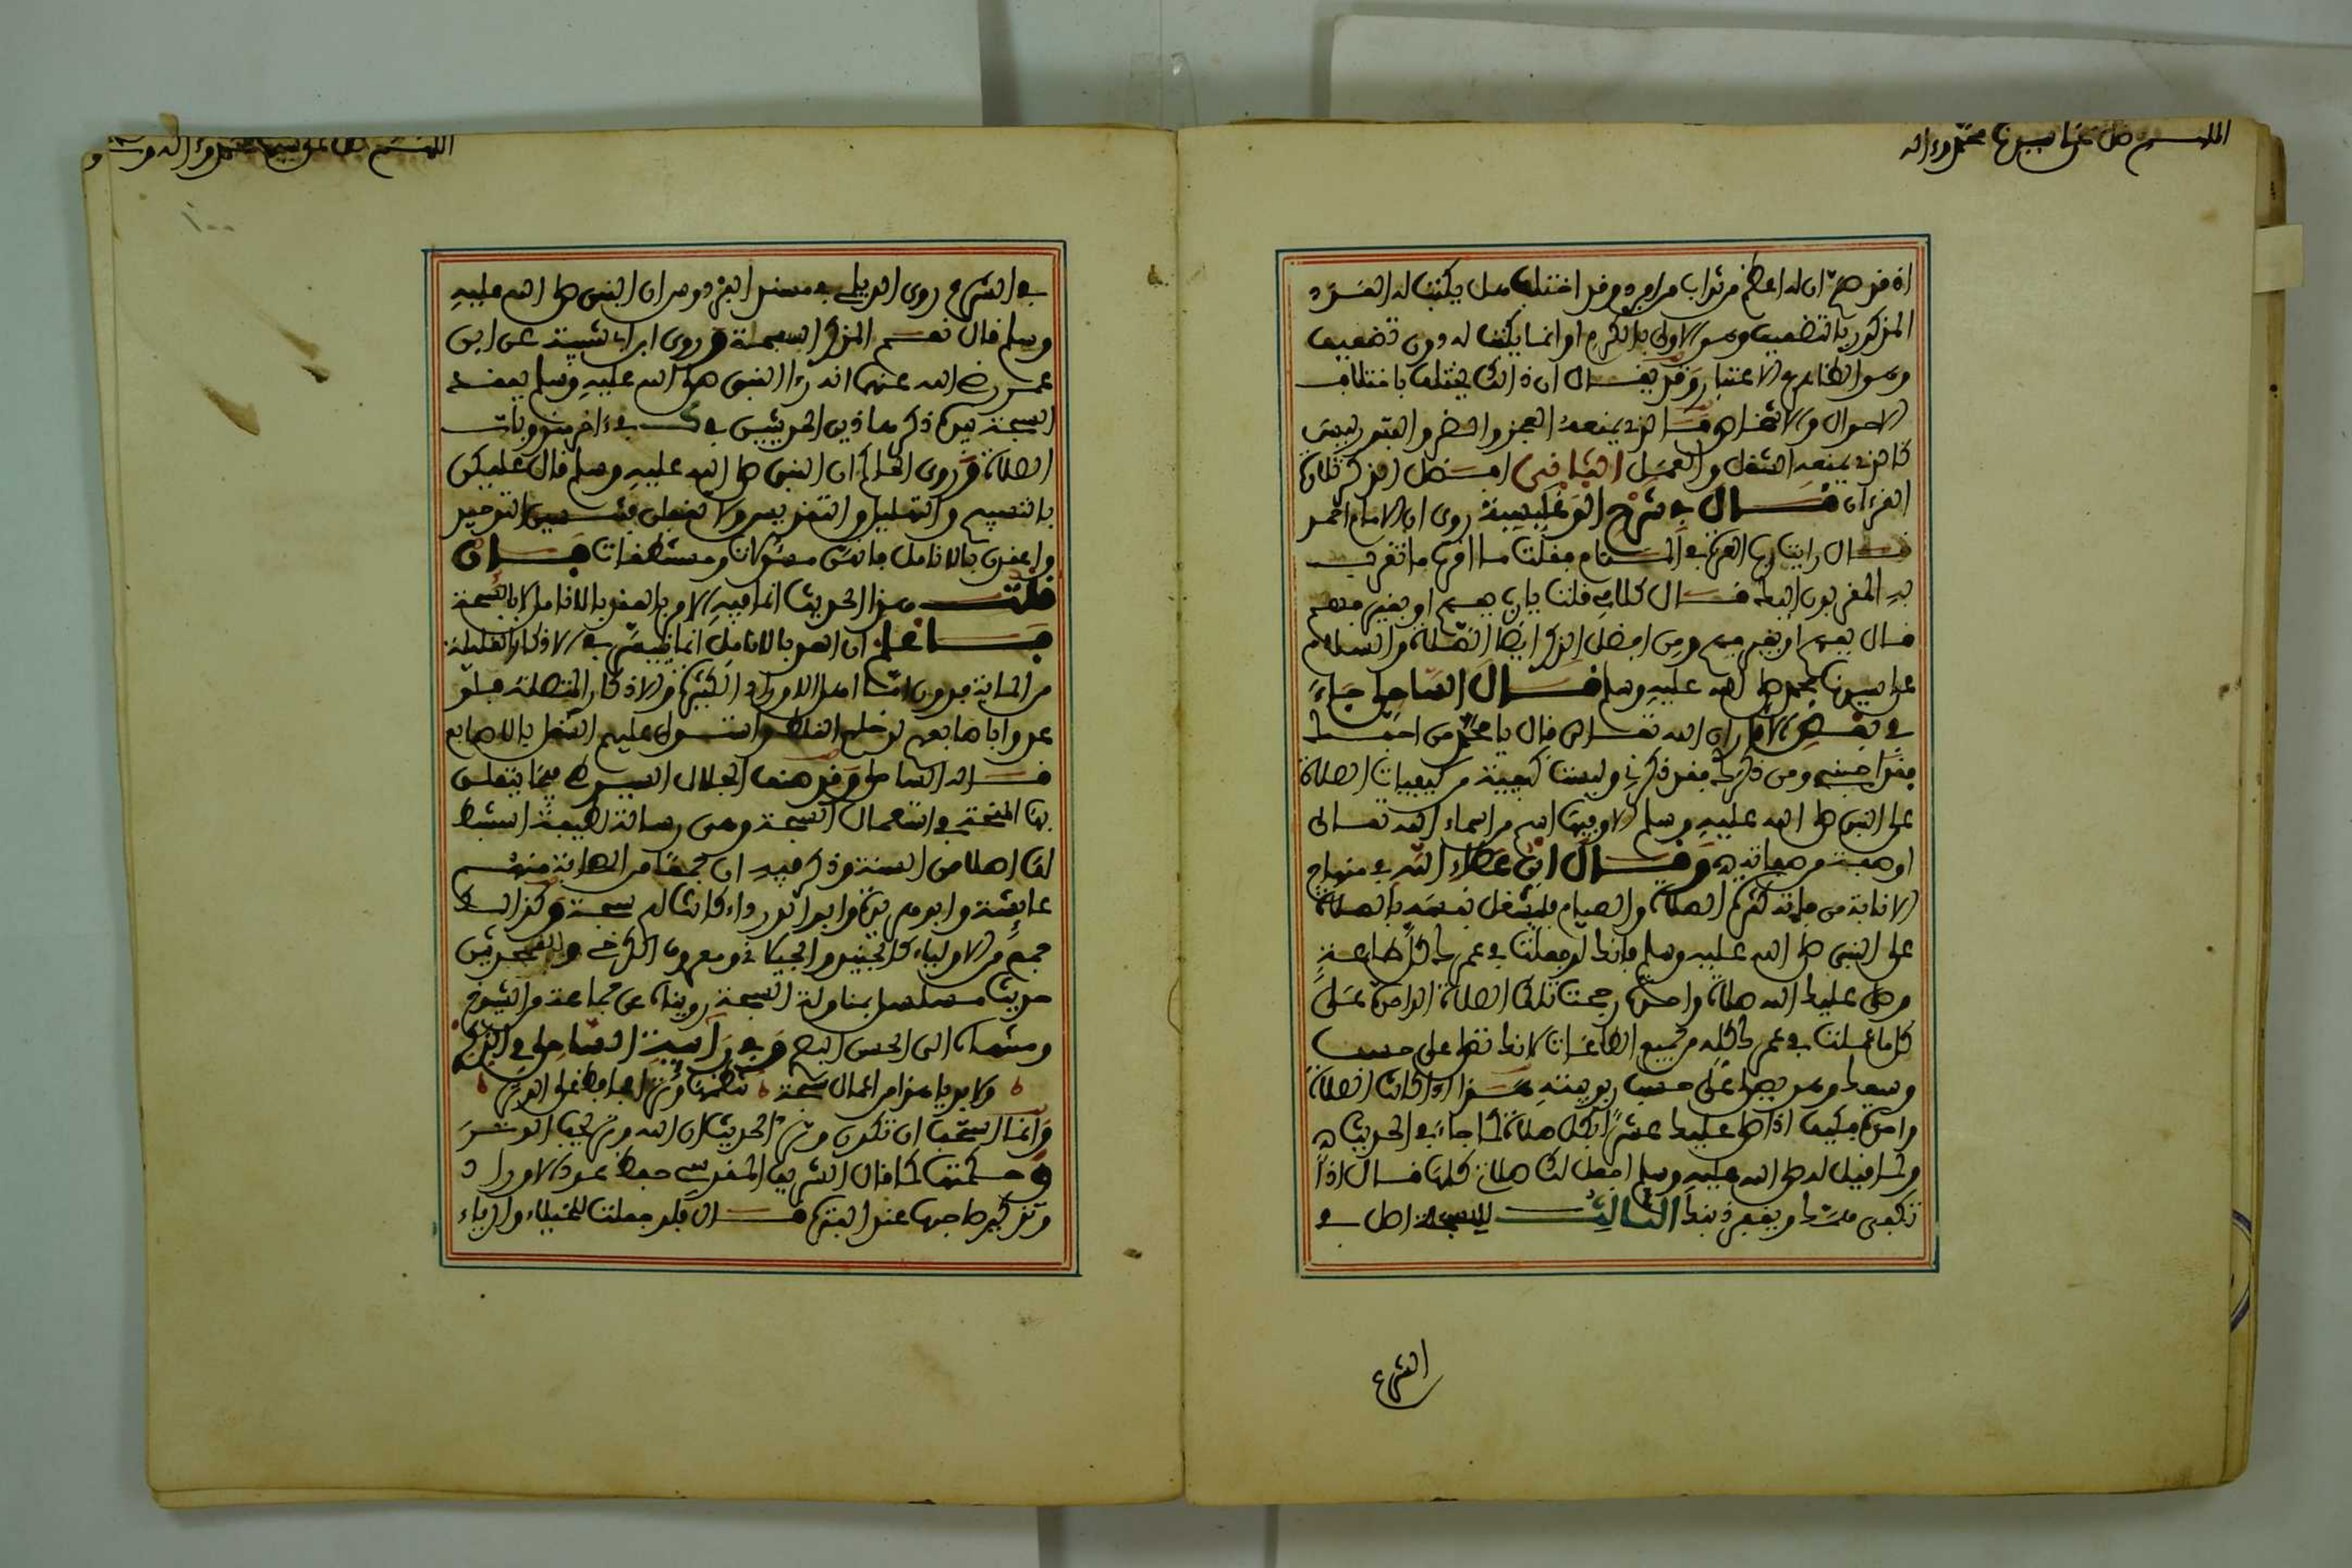 اللهم صل على سيدنا محمد وءاله
اذ قد صح ان له اعظم ثواب من اوجد وقد اختلف هل يكتب له العدد
المذكور بالتضعيف وهو الاولى بالكرم او انما يكتب له دون تضعيف
وهو الظاهر في الاعتبار وقد يقال ان ذالك يختلف باختلاف
الاحوال والاشخاص فما الذي يمنعه العجز والضر والفتور ليس
كالذي يمنعه الشغل والعمل الثاني افضل الذكر تلاوة
القرءان قال في شرح الوغليسية روى ان الامام احمد
قال رايت رب العزة في المنام فقلت ما اقرب ما تقرب
به المقربون اليك قال كلامي قلت يا رب بفهم او بغير فهم
قال بفهم او بغير فهم ومن افضل الذكر ايضا الصلاة والسلام
على سيدنا محمد صلى الله عليه وسلم قال الساحلي جاء
في بعض الاخبار ان الله تعالى قال يا محمد من احبك
فقد احبني ومن ذكرك فقد ذكرني وليست كيفية من كيفيات الصلاة
على النبي صلى الله عليه وسلم الا وفيها اسم من اسماء الله تعالى
او صفة من صفاته وقال ابن عطاء الله في منهاج
الانابة من فاته كثرة الصلاة والصيام فليشغل نفسه بالصلاة
على النبي صلى الله عليه وسلم فانك لو جعلت في عمرك كل طاعة
وصلى عليك الله صلاة واحدة رجحت تلك الصلاة الواحدة على
كل ما عملت في عمرك كله من جميع الطاعات لانك تصلي على حسب
وسعك وهو يصلي على حسب ربوبيته هذا اذا كانت الصلاة
واحدة فكيف اذا صلى عليك عشرا بكل صلاة كما جاء في الحديث
ولما قيل له صلى الله عليه وسلم اجعل لك صلاتي كلها قال اذا
تكفى همك ويغفر ذنبك الثالث للسبحة اصل في
الشرع
اللهم صل على سيدنا محمد وءاله
في الشرع روى الديلمي في مسند الفردوس ان النبي صلى الله عليه
وسلم قال نعم المذكر السبحة وروى ابن ابي شيبة عن ابن
عمر رضي الله عنهما انه رءا النبي صلى الله عليه وسلم يعقد
السبحة بيده ذكر هاذين الحديثين في ءاخر مندوبات
الصلاة وروى الحاكم ان النبي صلى الله عليه وسلم قال عليكن
بالتسبيح والتهليل والتقديس ولا تغفلن فتنسين التوحيد
واعقدن بالانامل فانهن مسئولات ومستنطقات فان
قلت هذا الحديث انما فيه الامر بالعقد بالانامل لا بالسبحة
فاعلم ان العد بالانامل انما يتيسر في الاذكار القليلة
من المائة فدون اما اهل الاوراد الكثيرة والاذكار المتصلة فلو
عدوا باصابعهم لدخلهم الغلط واستولى عليهم الشغل بالاصابع
قاله الساحلي وقد صنف الجلال السيوطي فيما يتعلق
بها المنحة في استعمال السبحة وهي رسالة لطيفة استنبط
لها اصلا من السنة وذكر فيه ان جمعا من الصحابة منهم
عايشة وابو هريرة وابو الدرداء كانت لهم سبحة وكذالك
جمع من الاولياء كالجنيد والجيلاني ومعروف الكرخي
حديث مسلسل بمناولة السبحة رويناه عن جماعة من الشيوخ
ومنتهاه الى الحسن البصري وفي رآئية الساحلي في الذكر
ولا بد يا هذا من اعمال سبحة
وانما استحب ان تكون وترا لحديث ان الله وتر يحب الوتر
وحكمتها كما قال الشريف المقدسي حفظ عدد الاوراد
وتذكير صاحبها عند الفترة قال فلو جعلت للخيلاء والرياء